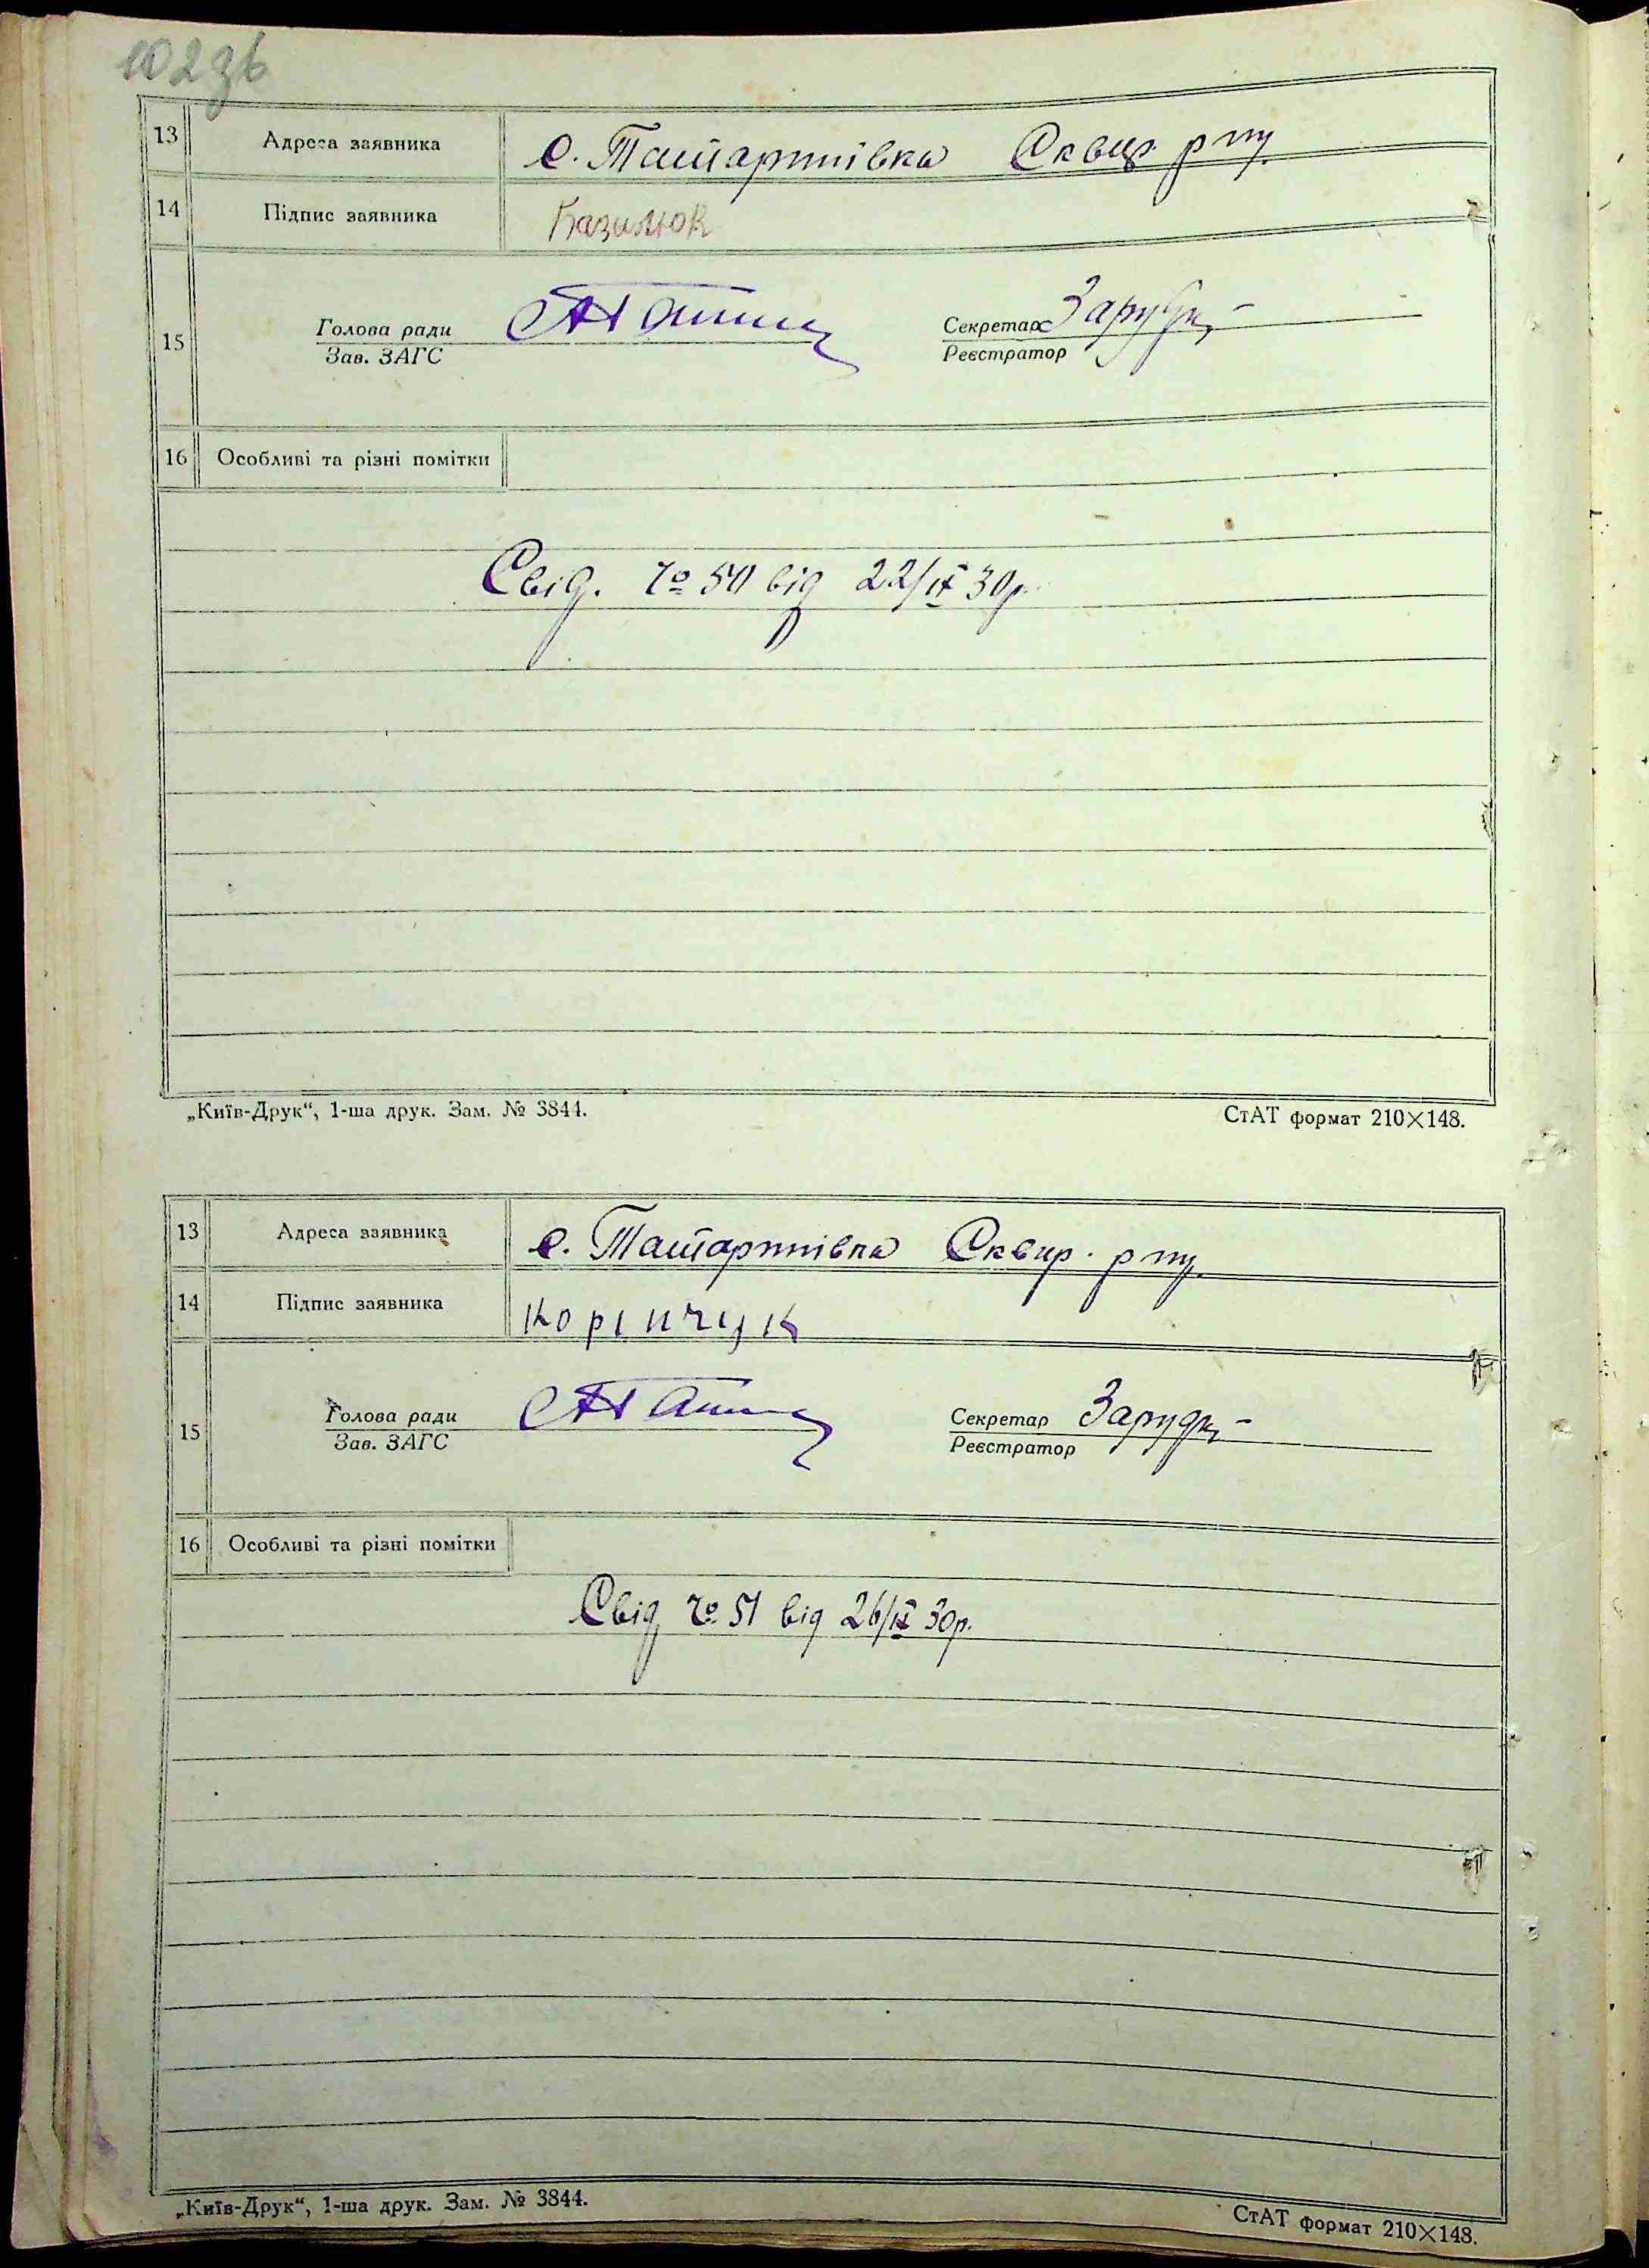 102зв
13 Адреса заявника с. Татаринівка Сквир. р ну.
14 Підпис заявника Базилюк
15 Голова ради Секретар Заруд
Зав. ЗАГС Реєстратор
16 Особливі та різні помітки
Свід. № 50 від 22/IX 30р.
„Київ-Друк“, 1-ша друк. Зам. № 3844. СтАТ формат 210×148.
13 Адреса заявника с. Татаринівка Сквир. р ну.
14 Підпис заявника Корінчук
15 Голова ради Секретар Заруд
Зав. ЗАГС Реєстратор
16 Особливі та різні помітки
Свід № 51 від 26/IX 30р.
„Київ-Друк“, 1-ша друк. Зам. № 3844. СтАТ формат 210×148.